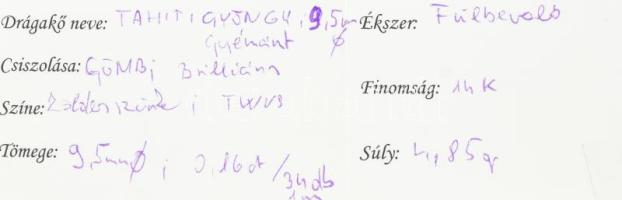 Drágakő neve: TAHITI GYÖNGY; 9,5mm Ékszer: Fülbevaló
Gyémánt ∅
Csiszolása: GÖMB; Brilliáns
Finomság: 14K
Színe: Zöldesszürke; TW/VS
Tömege: 9,5mm∅; 0,16ct/34db Súly: 4,85g
1mm